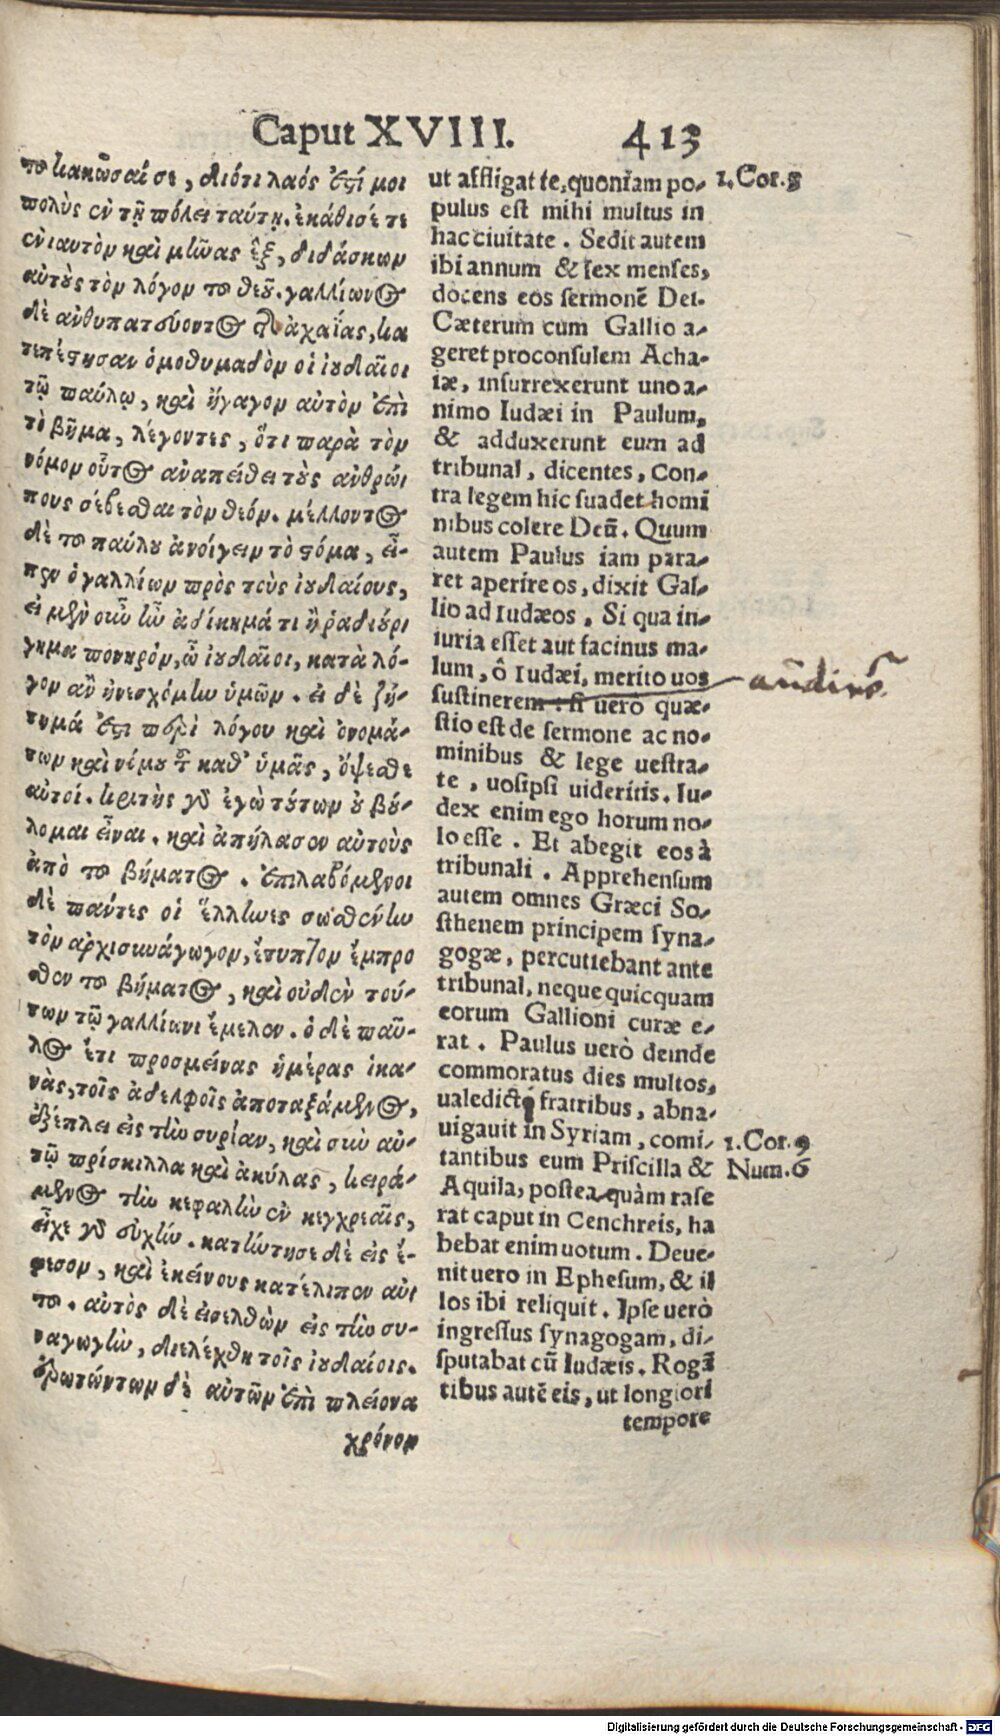 Caput XVIII. 413
τοῦ κακῶσαί σε, διότι λαός ἐστί μοι
πολὺς ἐν τῇ πόλει ταύτῃ. ἐκάθισέ τε
ἐνιαυτὸν καὶ μῆνας ἓξ, διδάσκων
αὐτοὺς τὸν λόγον τοῦ θεοῦ. γαλλίωνος
δὲ ἀνθυπατεύοντος τῆς ἀχαΐας, κα
τεπέστησαν ὁμοθυμαδὸν οἱ ἰουδαῖοι
τῷ παύλῳ, καὶ ἤγαγον αὐτὸν ἐπὶ
τὸ βῆμα, λέγοντες, ὅτι παρὰ τὸν
νόμον οὗτος ἀναπείθει τοὺς ἀνθρώ
πους σέβεσθαι τὸν θεόν. μέλλοντος
δὲ τοῦ παύλου ἀνοίγειν τὸ στόμα, εἶ-
πεν ὁ γαλλίων πρὸς τοὺς ἰουδαίους,
εἰ μὲν οὖν ἦν ἀδίκημά τι ἢ ῥαδιούρ
γημα πονηρόν, ὦ ἰουδαῖοι, κατὰ λό-
γον ἂν ἠνεσχόμην ὑμῶν. εἰ δὲ ζή-
τημά ἐστι περὶ λόγου καὶ ὀνομά-
των καὶ νόμου τοῦ καθ' ὑμᾶς, ὄψεσθε
αὐτοί. κριτὴς γὰρ ἐγὼ τούτων οὐ βού-
λομαι εἶναι. καὶ ἀπήλασεν αὐτοὺς
ἀπὸ τοῦ βήματος. ἐπιλαβόμενοι
δὲ πάντες οἱ ἕλληνες σωσθένην
τὸν ἀρχισυνάγωγον, ἔτυπτον ἔμπρο
σθεν τοῦ βήματος, καὶ οὐδὲν τού-
των τῷ γαλλίωνι ἔμελεν. ὁ δὲ παῦ-
λος ἔτι προσμείνας ἡμέρας ἱκα-
νὰς, τοῖς ἀδελφοῖς ἀποταξάμενος,
ἐξέπλει εἰς τὴν συρίαν, καὶ σὺν αὐ-
τῷ πρίσκιλλα καὶ ἀκύλας, κειρά-
μενος τὴν κεφαλὴν ἐν κεγχρεαῖς,
εἶχε γὰρ εὐχήν. κατήντησε δὲ εἰς ἔ-
φεσον, καὶ ἐκείνους κατέλιπεν αὐ
τοῦ. αὐτὸς δὲ εἰσελθὼν εἰς τὴν συ-
ναγωγὴν, διελέχθη τοῖς ἰουδαίοις.
ἐρωτώντων δὲ αὐτῶν ἐπὶ πλείονα
χρόνον
ut affligat te, quoniam po-
pulus est mihi multus in
hac ciuitate. Sedit autem
ibi annum & sex menses,
docens eos sermonē Dei.
Cæterum cum Gallio a-
geret proconsulem Acha-
iæ, insurrexerunt uno a-
nimo Iudæi in Paulum,
& adduxerunt eum ad
tribunal, dicentes, Con-
tra legem hic suadet homi
nibus colere Deū. Quum
autem Paulus iam para-
ret aperire os, dixit Gal-
lio ad Iudæos, Si qua in-
iuria esset aut facinus ma-
lum, ô Iudæi, merito uos
sustinerem: si uerò quæ-
stio est de sermone ac no-
minibus & lege uestra-
te, uosipsi uideritis. Iu-
dex enim ego horum no-
lo esse. Et abegit eos à
tribunali. Apprehensum
autem omnes Græci So-
sthenem principem syna-
gogæ, percutiebant ante
tribunal, neque quicquam
eorum Gallioni curæ e-
rat. Paulus uerò deinde
commoratus dies multos,
ualedictꝭ fratribus, abna-
uigauit in Syriam, comi-
tantibus eum Priscilla &
Aquila, postea quàm rase
rat caput in Cenchreis, ha
bebat enim uotum. Deue-
nit uero in Ephesum, & il
los ibi reliquit. Ipse uerò
ingressus synagogam, di-
sputabat cū Iudæis. Rogā
tibus autē eis, ut longiori
tempore
1. Cor. 3
1. Cor. 9
Num. 6
Digitalisierung gefördert durch die Deutsche Forschungsgemeinschaft - DFG